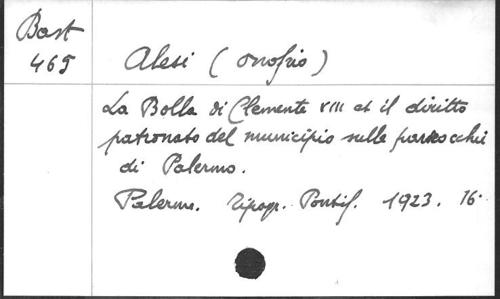 Bast
465
Alesi (Onofrio)
La Bolla di Clemente VIII et il diritto
patronato del municipio sulle parrocchie
di Palermo.
Palermo. Tipogr. Pontif. 1923. 16-